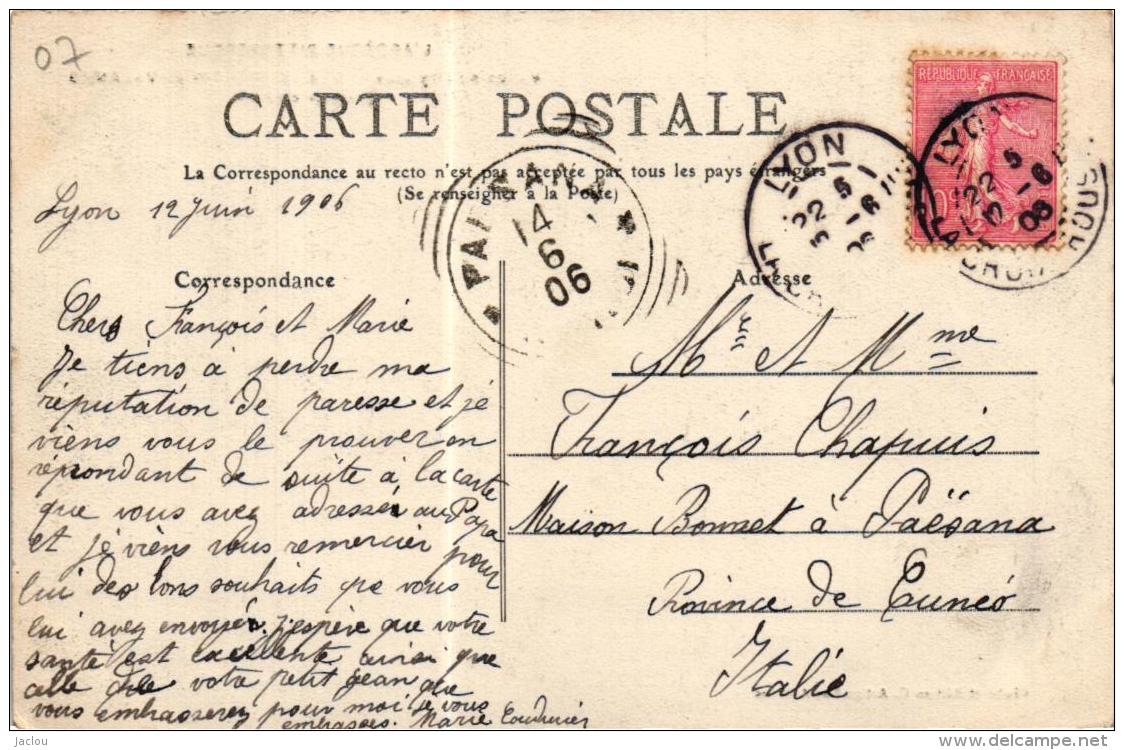 07
CARTE POSTALE
La Correspondance au recto n'est pas acceptée par tous les pays étrangers
(Se renseigner à la Poste)
RÉPUBLIQUE FRANÇAISE
LYON
22 5
LYON
22 5
14
6
06
Lyon 12 Juin 1906
Correspondance
Chers François et Marie
Je tiens à perdre ma
réputation de paresse et je
viens vous le prouver en
répondant de suite à la carte
que vous avez adressée au Papa
et je viens vous remercier pour
lui des bons souhaits que vous
lui avez envoyés. J'espère que votre
santé est excellente ainsi que
celle de votre petit Jean que
vous embrasserez pour moi je vous
embrasses. Marie
Adresse
Mr et Mme
François Chapuis
Maison Bonnet à Paësana
Province de Cunéo
Italie
© jaclou
www.delcampe.net